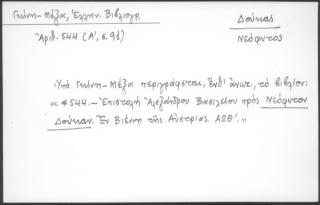 Γκίνη - Μέξα, Ἑλλην. Βιβλιογρ.
Ἀριθ. 544 (Α', σ. 91)
Δούκας
Νεόφυτος
Ὑπό Γκίνη - Μέξα περιγράφεται, ἔνθ' ἀνωτ., τό βιβλίον:
« *544. - Ἐπιστολή Ἀλεξάνδρου Βασιλείου πρός Νεόφυτον
Δούκαν. Ἐν Βιέννῃ τῆς Αὐστρίας. ΑΩΘ'. »